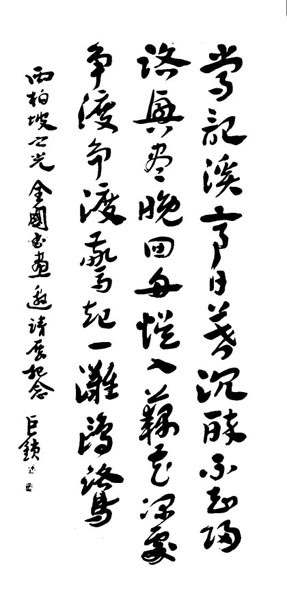 常記溪亭日暮沉醉不知歸
路興盡晚回舟悮入藕花深處
争渡争渡驚起一灘鷗鷺
西柏坡之光全國書畫邀請展紀念 巨鎖